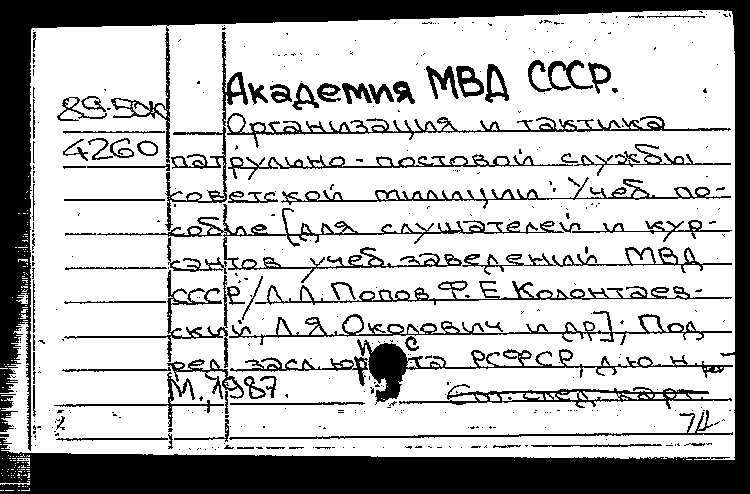 Академия МВД СССР.
89-50К
Организация и тактика
4260
патрульно-постовой службы
советской милиции: Учеб. по-
собие [для слушателей и кур-
сантов учеб. заведений МВД
СССР / Л. Л. Попов, Ф. Е. Колонтаев-
ский, Л. Я. Околович и др.]; Под
ред. засл. юриста РСФСР, д. ю. н.
М., 1987.
См. след. карт.